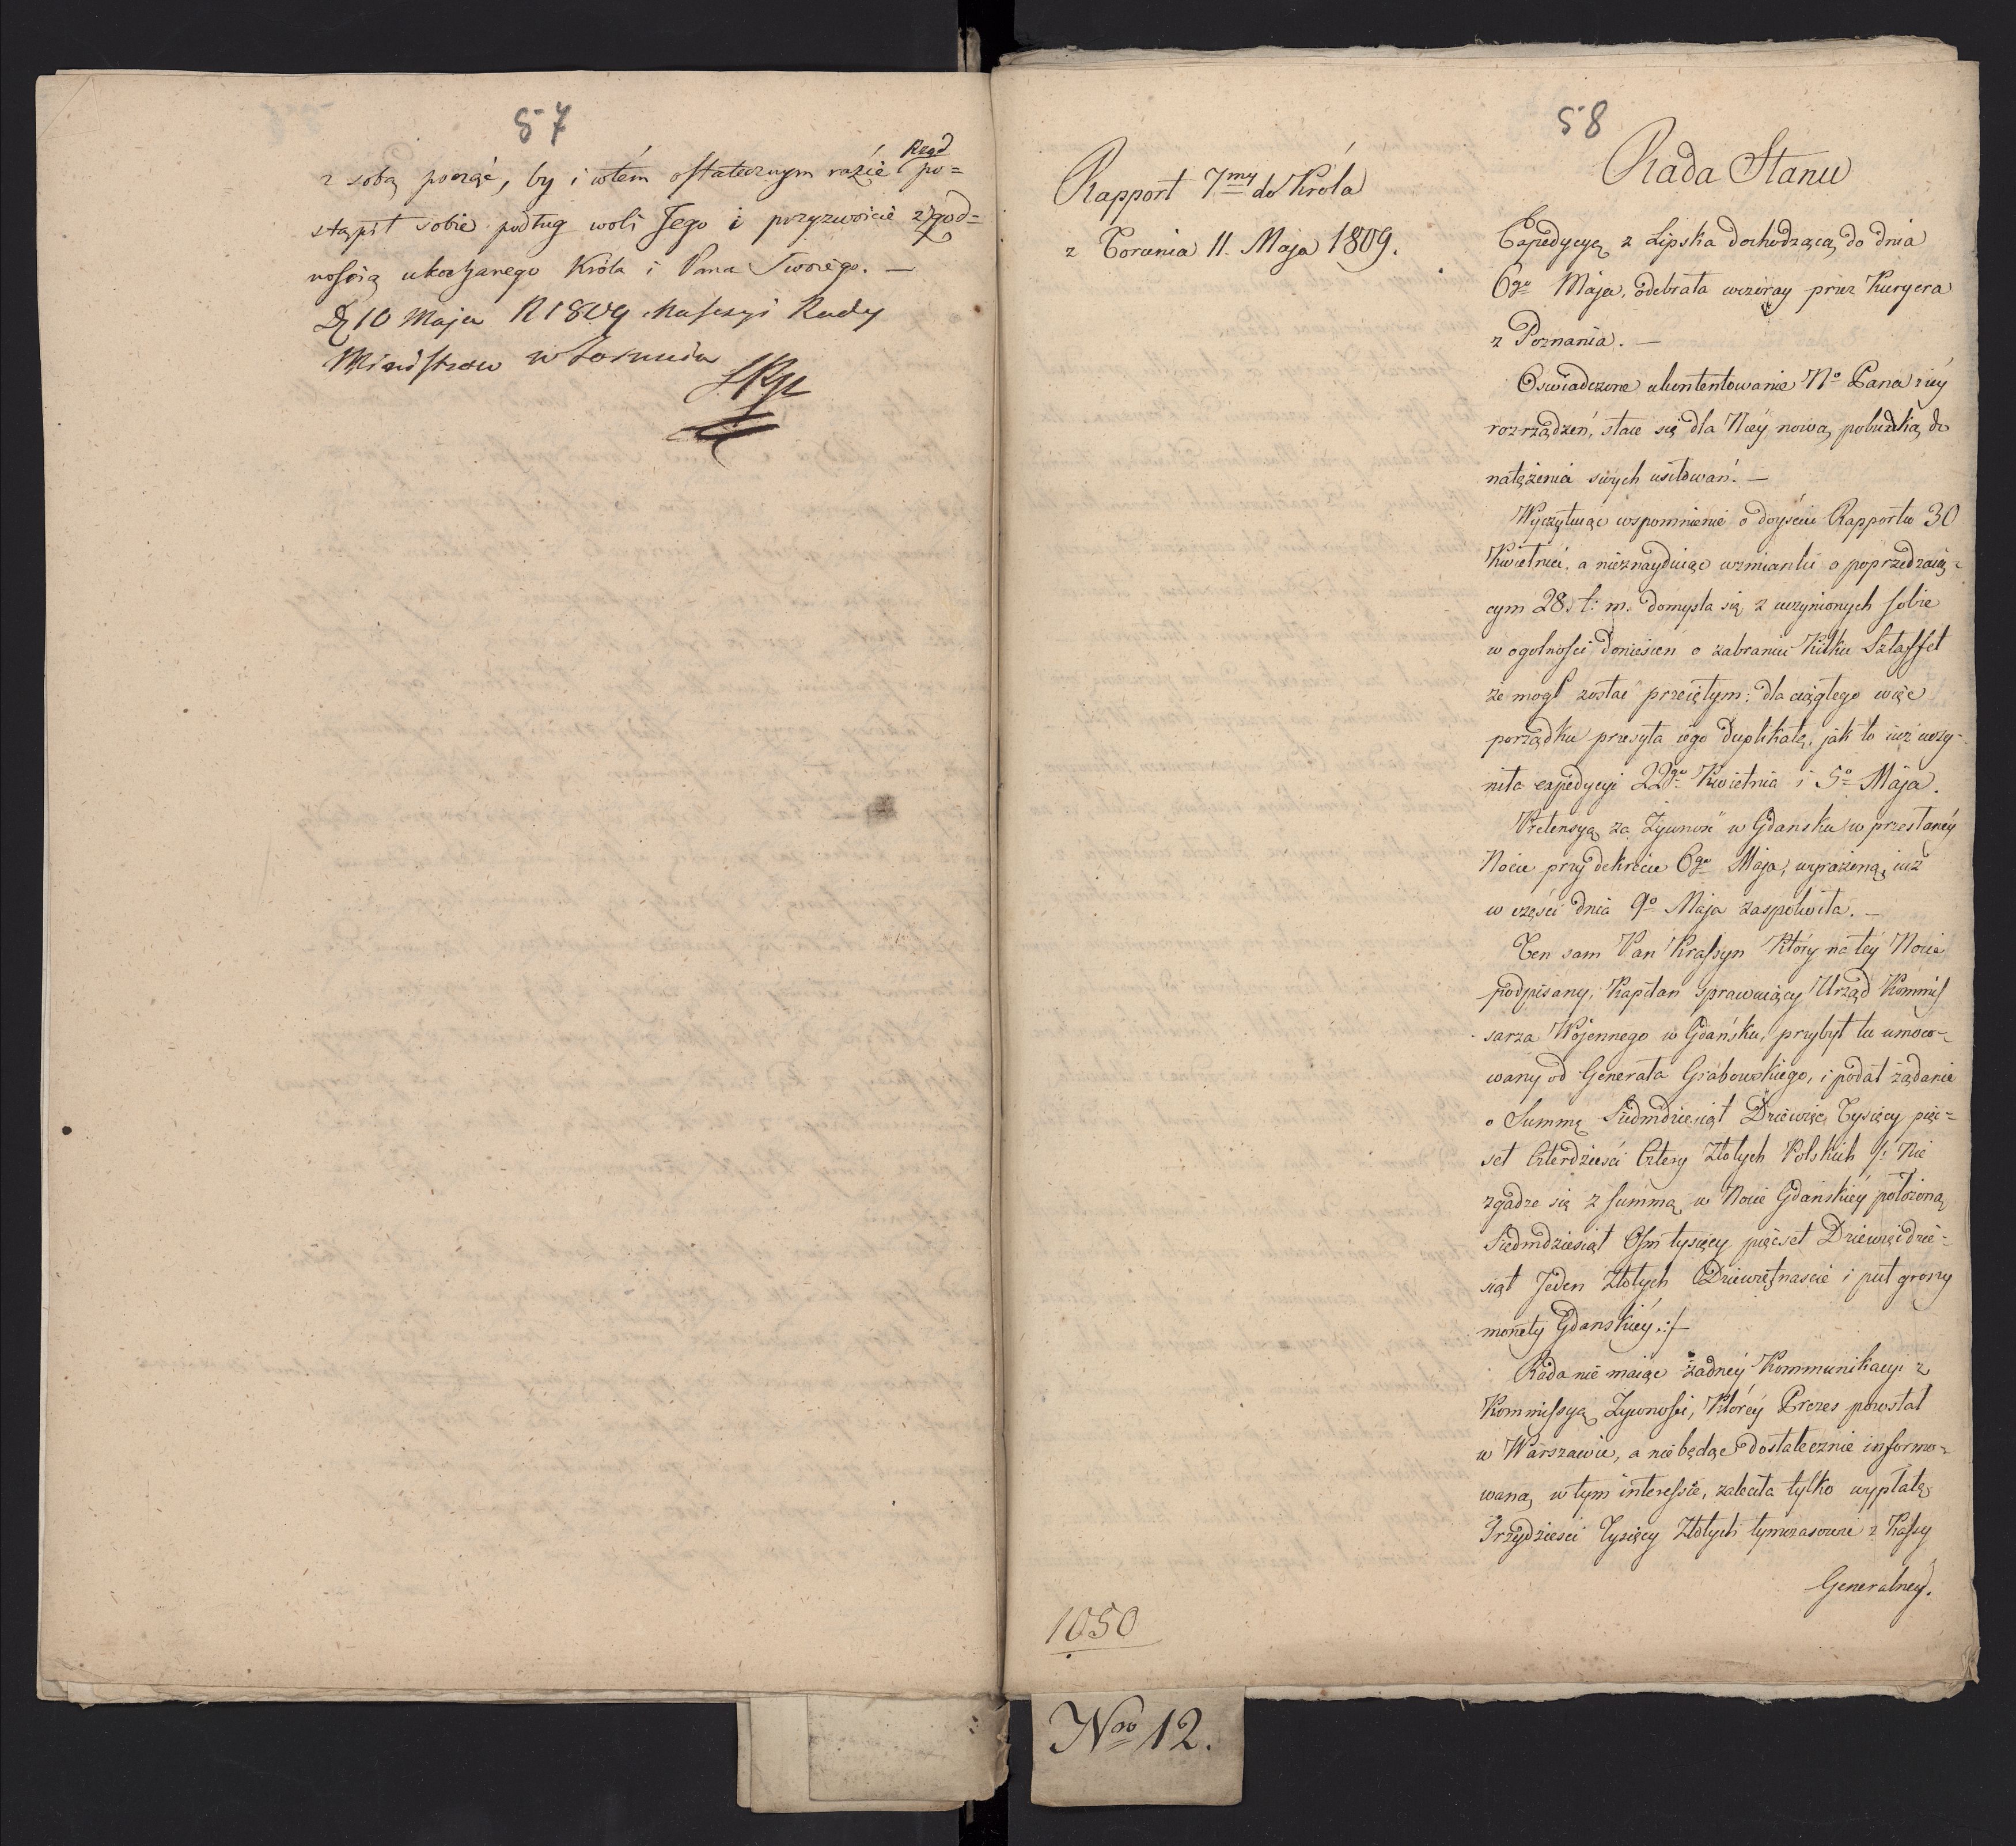 57
z sobą począć, by i wtém ostatecznym razié Rząd po=
stąpił sobie podług woli Jego i przyzwoicie z god=
nością ukochanego Króla i Pana Swoiego. —
D 10 Maja R 1809 Sessyi Rady
Ministrow w Toruniu
58
Rapport 7my do Króla
z Torunia 11. Maja 1809.
Rada Stanu
Expedycyą z Lipska dochodzącą do dnia
6go Maja, odebrała wczoray przez Kuryera
z Poznania. —
Oswiadczone ukontentowanie No Pana z iéy
rozrządzeń, staie się dla Niéy nową pobudką do
natężenia swych usiłowań. —
Wyczytuiąc wspomnienie o doyściu Rapportu 30
Kwietnia, a nieznayduiąc wzmianki o poprzedzaią=
cym 28. t: m. domysla się z uczynionych sobie
w ogolności doniesień o zabraniu kilku Sztaffet
że mogł zostać przeiętym: dla ciągłego więc
porządku przesyła iego duplikatę, jak to iuż uczy=
niła expedycyi 22go Kwietnia i 5o Maja.
Pretensyą za Żywność w Gdansku w przesłanéy
Nocie przy dekrecie 6go Maja, wyrażoną, iuż
w części dnia 9o Maja zaspokoiła. —
Ten sam Pan Krassyn który na téy Nocie
podpisany, Kapitan sprawuiący Urząd Kommis
sarza Wojennego w Gdańsku, przybył tu umoco=
wany od Generała Grabowskiego, i podał żądanie
o Summę Siedmdziesiąt Dziewięć Tysięcy pięc=
set Czterdzieści Cztery Złotych Polskich /: Nie
zgadza się z summą w Nocie Gdanskiéy położoną
Siedmdziesiąt Osm tysięcy pięcset Dziewięcdzie=
siąt Jeden Złotych Dziewiętnaście i puł groszy
monety Gdanskiéy :/ —
Rada nie maiąc żadnéy Kommunikacyi z
Kommissyą Żywności, któréy Prezes pozostał
w Warszawie, a niebędąc dostatecznie informo=
waną w tym interessie, zaleciła tylko wypłatę
Trzydzieści Tysięcy Złotych tymczasowie z Kassy
Generalnéy.
1050
Nro 12.